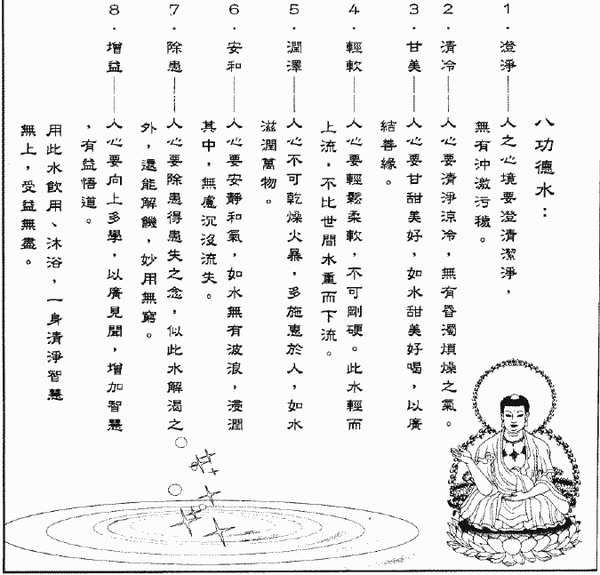 八功德水：
1．澄淨——人之心境要澄清潔淨，
無有沖激污穢。
2．清冷——人心要清淨涼冷，無有昏濁煩燥之氣。
3．甘美——人心要甘甜美好，如水甜美好喝，以廣
結善緣。
4．輕軟——人心要輕鬆柔軟，不可剛硬。此水輕而
上流，不比世間水重而下流。
5．潤澤——人心不可乾燥火暴，多施惠於人，如水
滋潤萬物。
6．安和——人心要安靜和氣，如水無有波浪，浸潤
其中，無慮沉沒流失。
7．除患——人心要除患得患失之念，似此水解渴之
外，還能解饑，妙用無窮。
8．增益——人心要向上多學，以廣見聞，增加智慧
，有益悟道。
用此水飲用、沐浴，一身清淨智慧
無上，受益無盡。